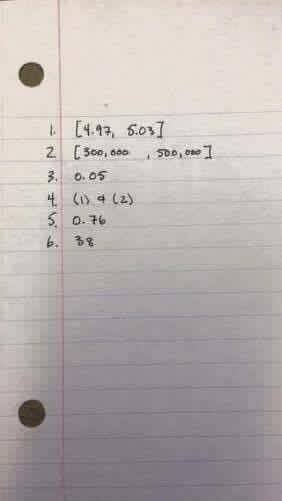 1. [4.97, 5.03]
2 [300,000 , 500,000]
3. 0.05
4. (1) & (2)
5. 0.76
6. 38